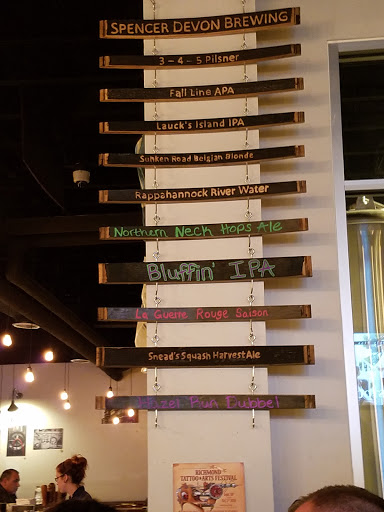 SPENCER DEVON BREWING
3-4-5 Pilsner
Fall Line APA
Lauck's Island IPA
Sunken Road Belgian Blonde
Rappahannock River Water
Northern Neck Hops Ale
Bluffin' IPA
La Guerre Rouge Saison
Snead's Squash Harvest Ale
Hazel Run Dubbel
RICHMOND
TATTOO & ARTS FESTIVAL